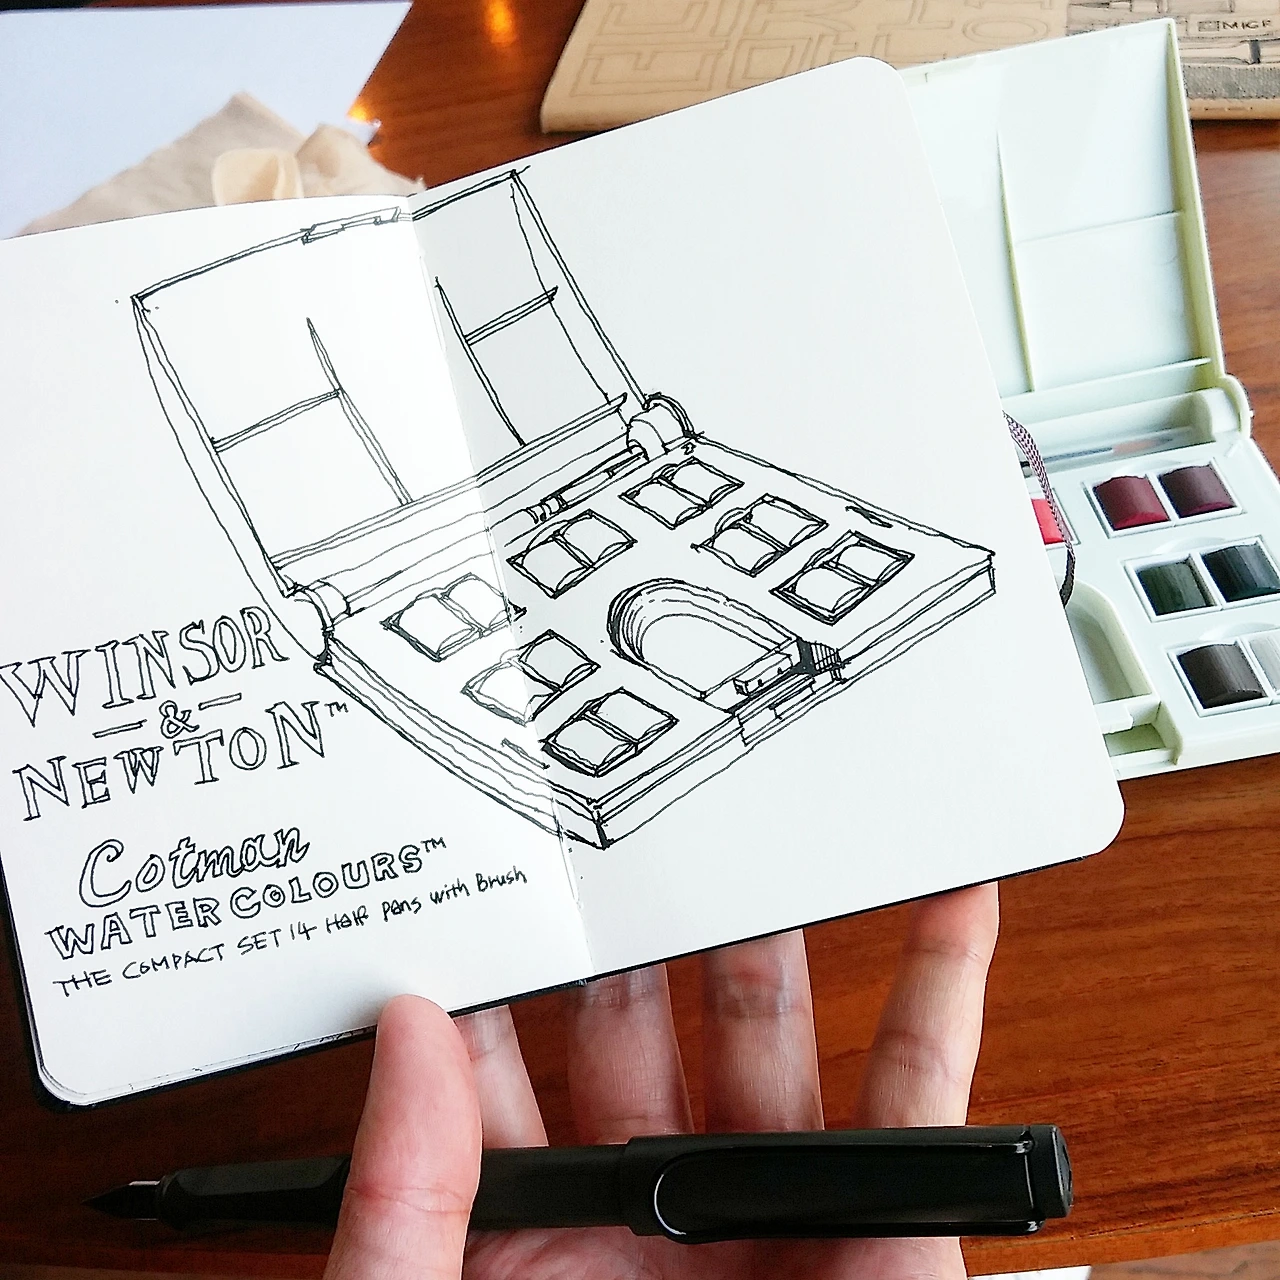 WINSOR
— & —
NEWTON™
Cotman
WATER COLOURS™
THE COMPACT SET 14 Half Pans with Brush